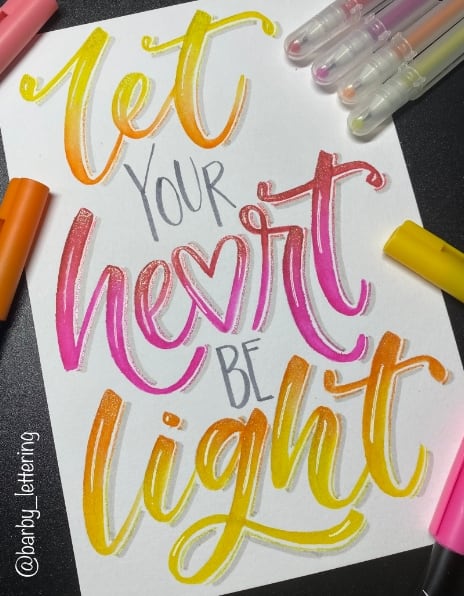 let
YOUR
heart
BE
light
@barby_lettering